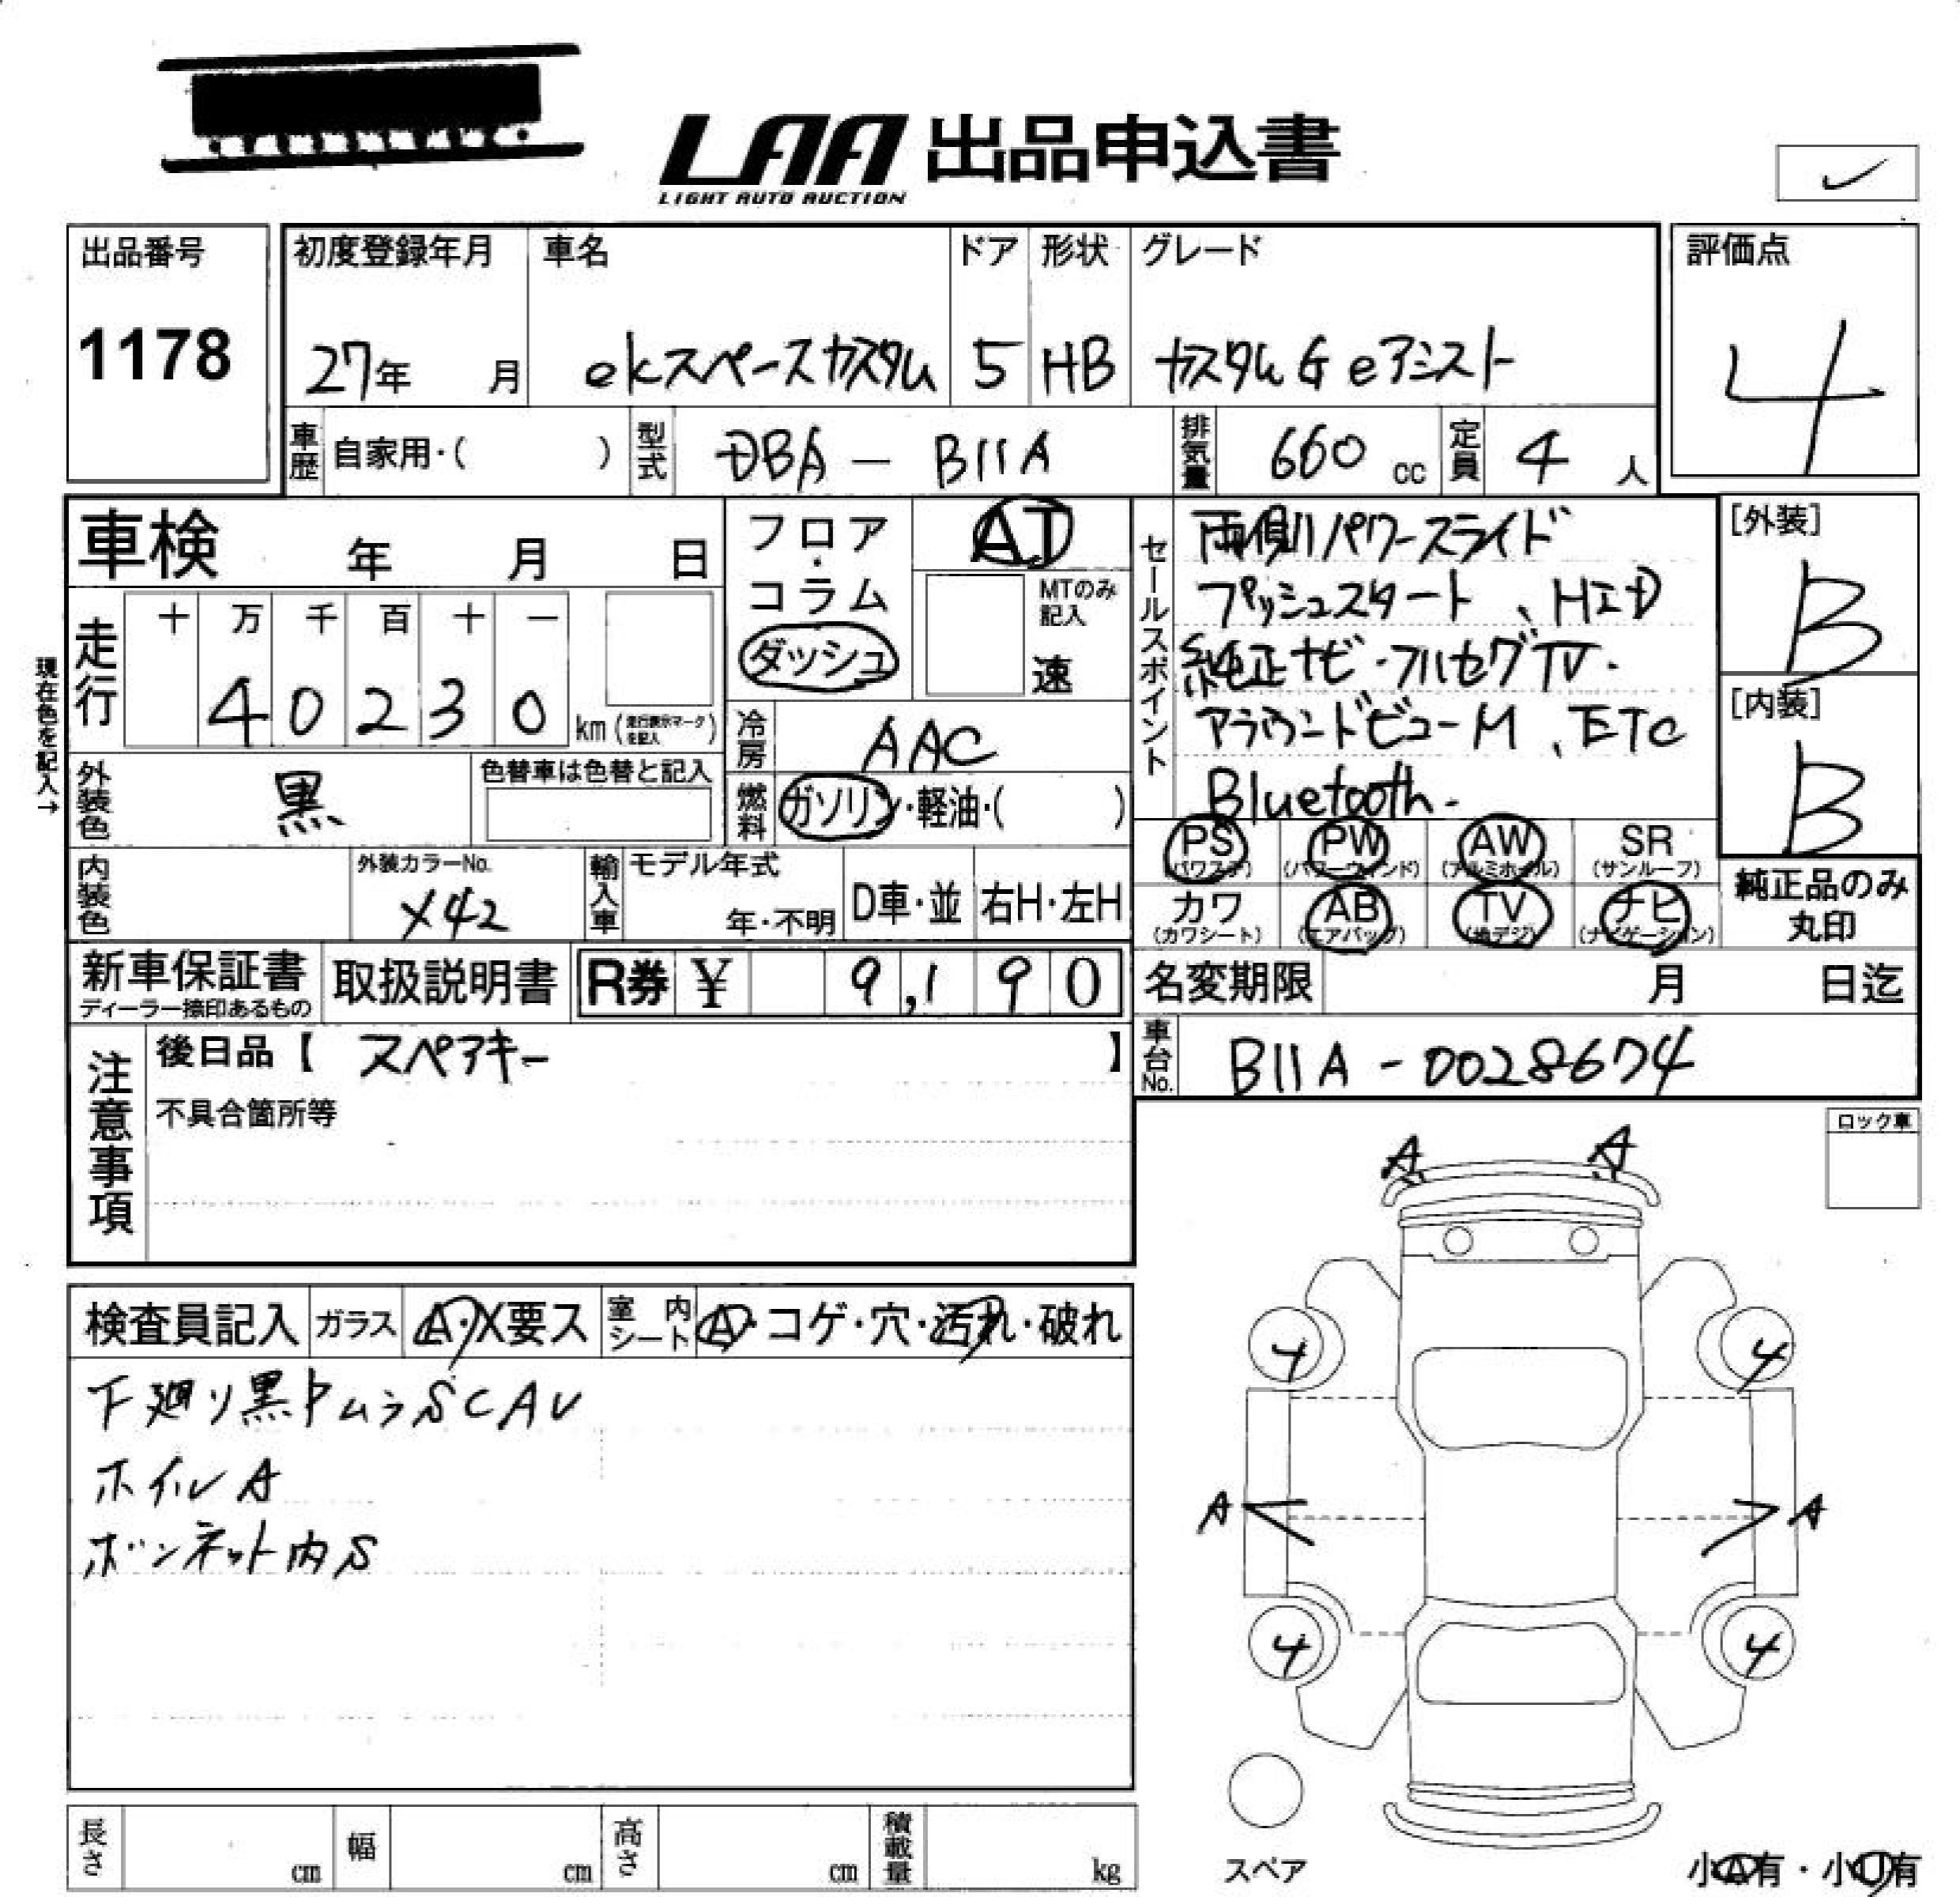 LAA 出品申込書
LIGHT AUTO AUCTION
✓
出品番号 初度登録年月 車名 ドア 形状 グレード 評価点
1178 27年 月 ekスペースカスタム 5 HB カスタムG eアシスト 4
車歴 自家用・( ) 型式 DBA - B11A 排気量 660 cc 定員 4 人
車検 年 月 日
フロア・コラム
ダッシュ
AT
MTのみ記入
速
セールスポイント
両側パワースライド
プッシュスタート、HID
純正ナビ・フルセグTV.
アラウンドビューM、ETC
Bluetooth.
[外装]
B
[内装]
B
現在色を記入→
走行 十 万 千 百 十 一
4 0 2 3 0 km (走行表示マークを記入)
冷房 AAC
外装色 黒 色替車は色替と記入
燃料 ガソリン・軽油・( )
PS (パワステ) PW (パワーウィンド) AW (アルミホイル) SR (サンルーフ)
カワ (カワシート) AB (エアバッグ) TV (地デジ) ナビ (ナビゲーション)
純正品のみ
丸印
内装色 外装カラーNo. X42 輸入車 モデル年式 年・不明 D車・並 右H・左H
新車保証書 ディーラー捺印あるもの 取扱説明書 R券 ¥ 9,190
名変期限 月 日迄
車台No. B11A - 0028674
注意事項
後日品【 スペアキー 】
不具合箇所等
ロック車
A A
検査員記入 ガラス A・X要ス 室内シート A・コゲ・穴・汚れ・破れ
下廻り黒トムラSCAU
ホイルA
ボンネット内S
4 4
A A
4 4
スペア
小A有・小U有
長さ cm 幅 cm 高さ cm 積載量 kg